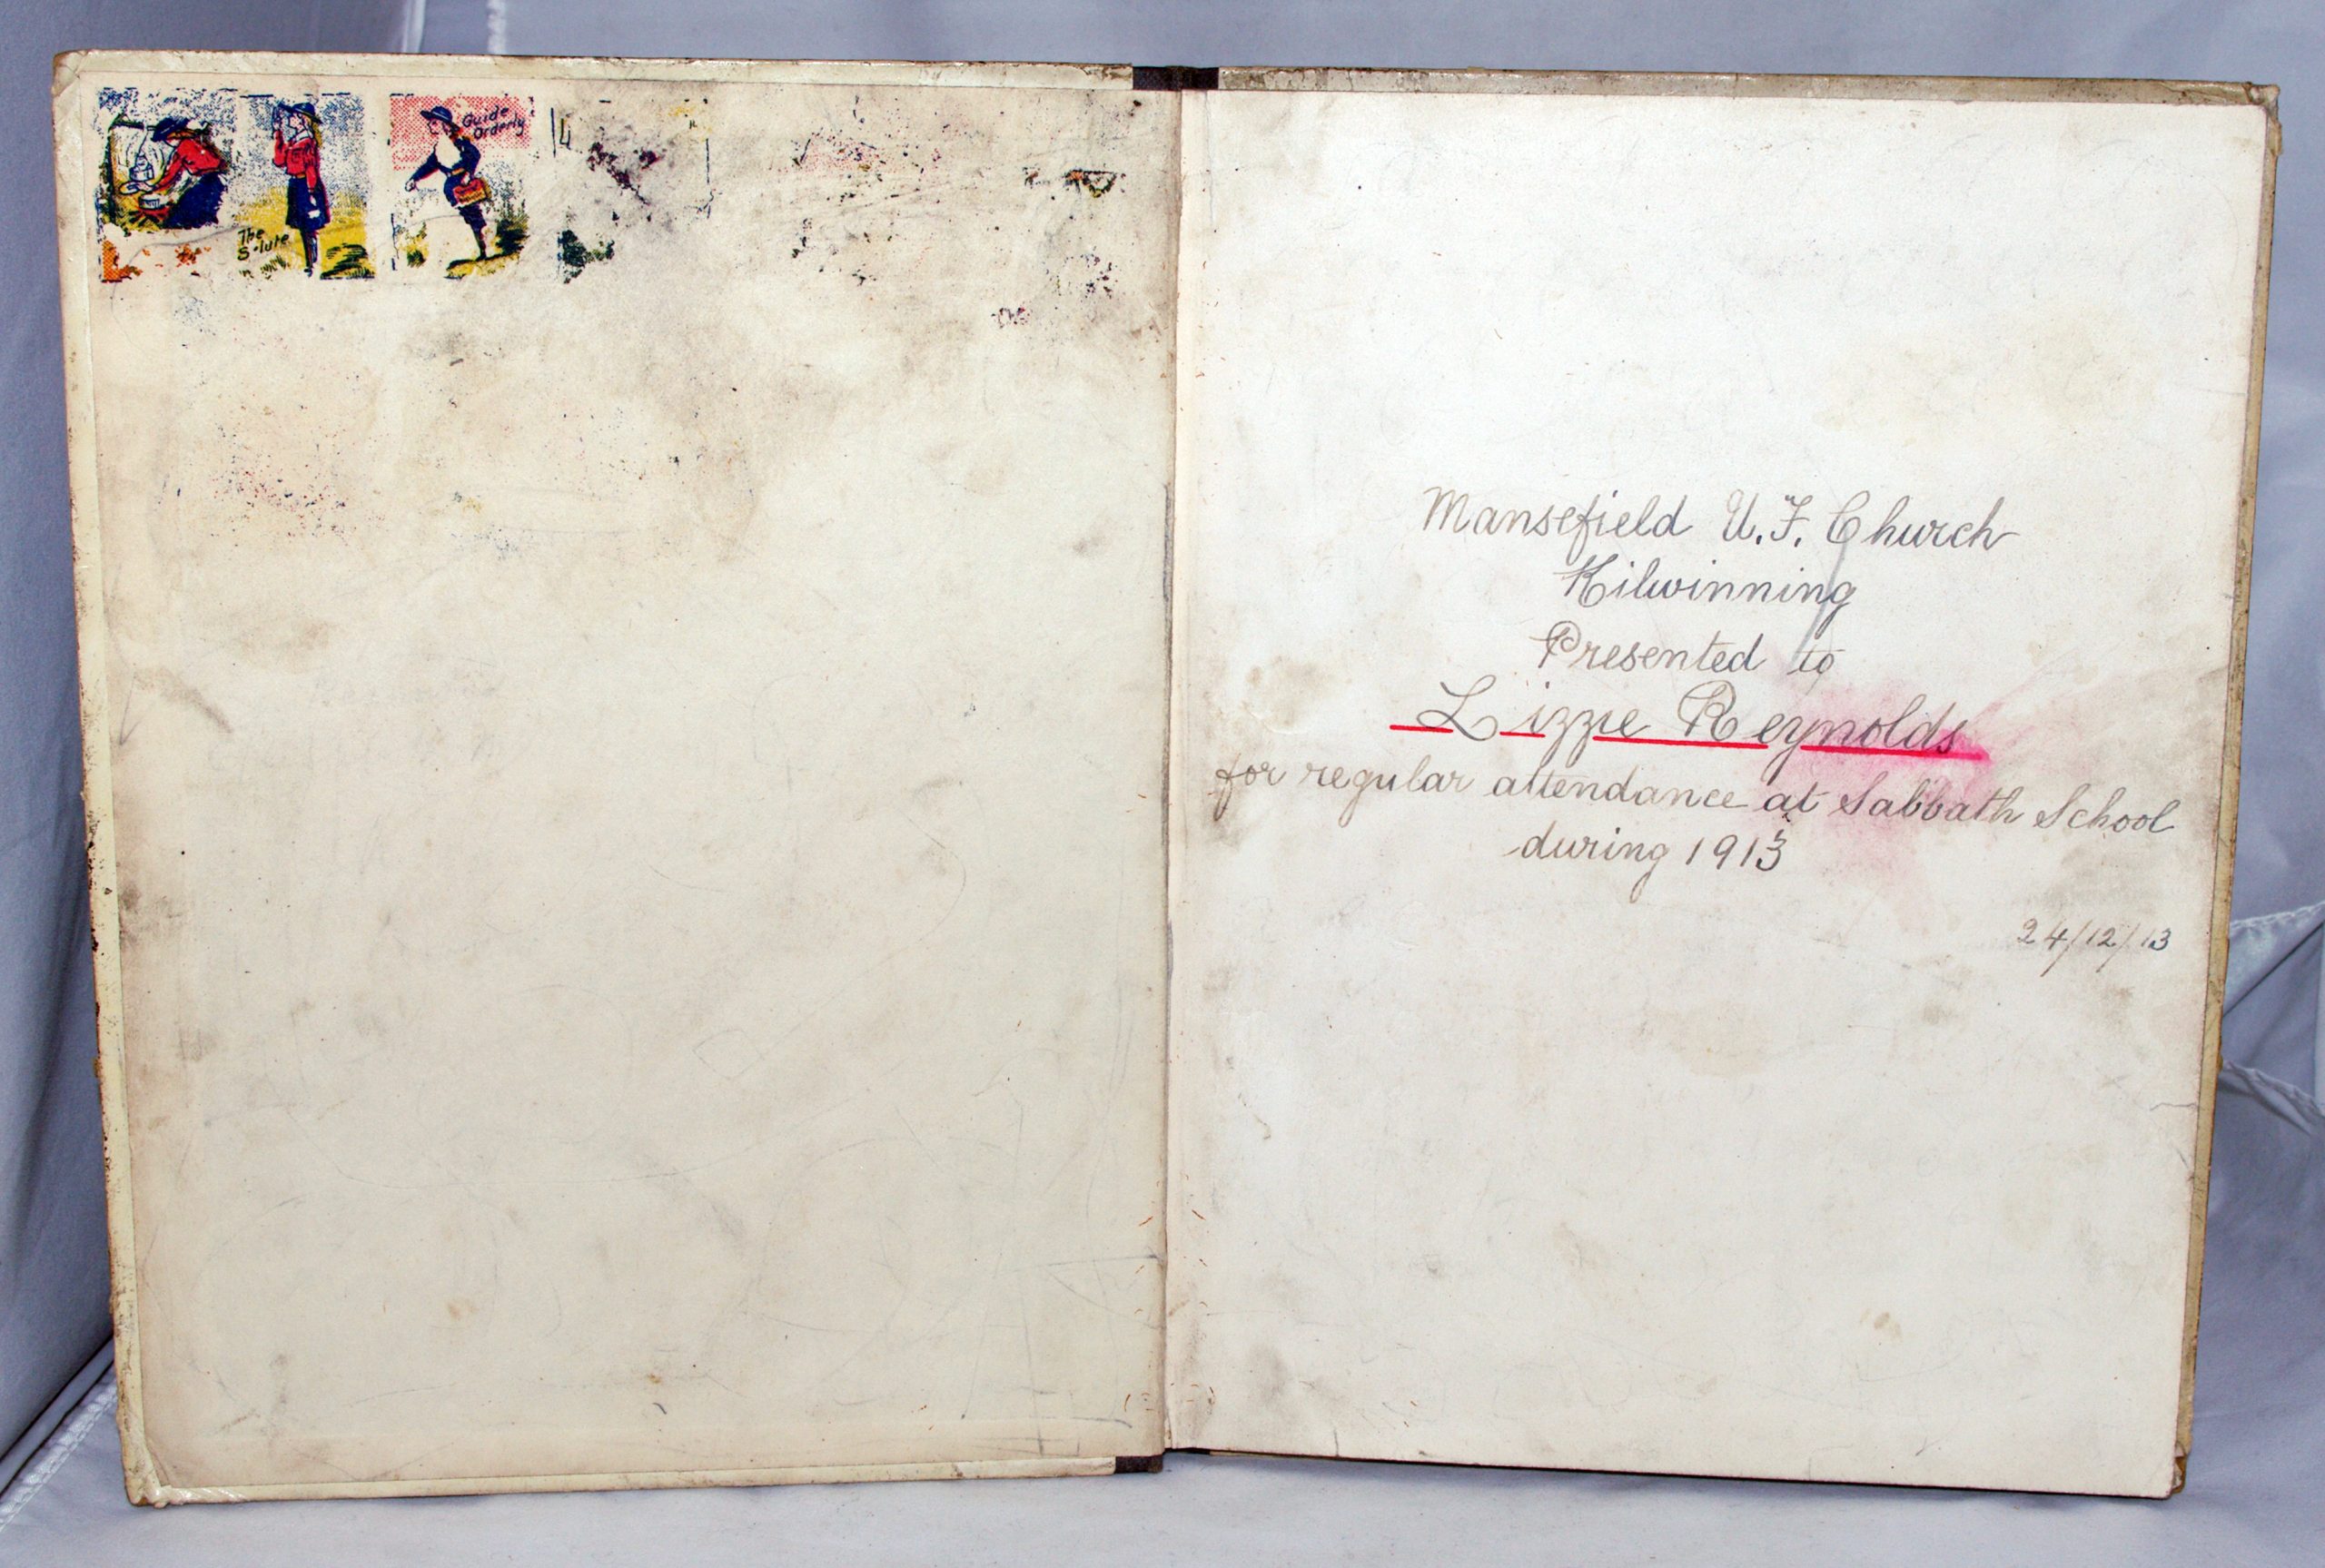 Guide
Orderly
The
S lute
Mansefield U.F. Church
Kilwinning
Presented to
Lizzie Reynolds
for regular attendance at Sabbath School
during 1913
24/12/13